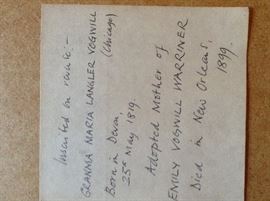 Inserted on vault:-
GRANMA MARIA LANGLER VOGWILL
(Chicago)
Born in Devon,
25th May 1819.
Adopted Mother of
EMILY VOGWILL WARRINER
Died in New Orleans,
1899.